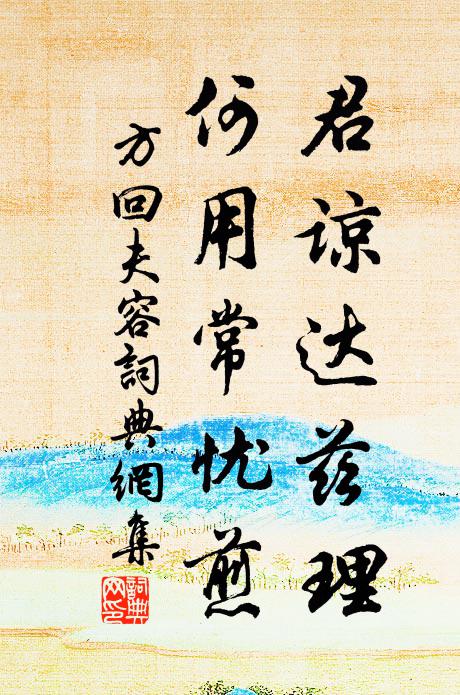 君谅达兹理
何用常忧煎
方回夫容詞典網集
詞典网印